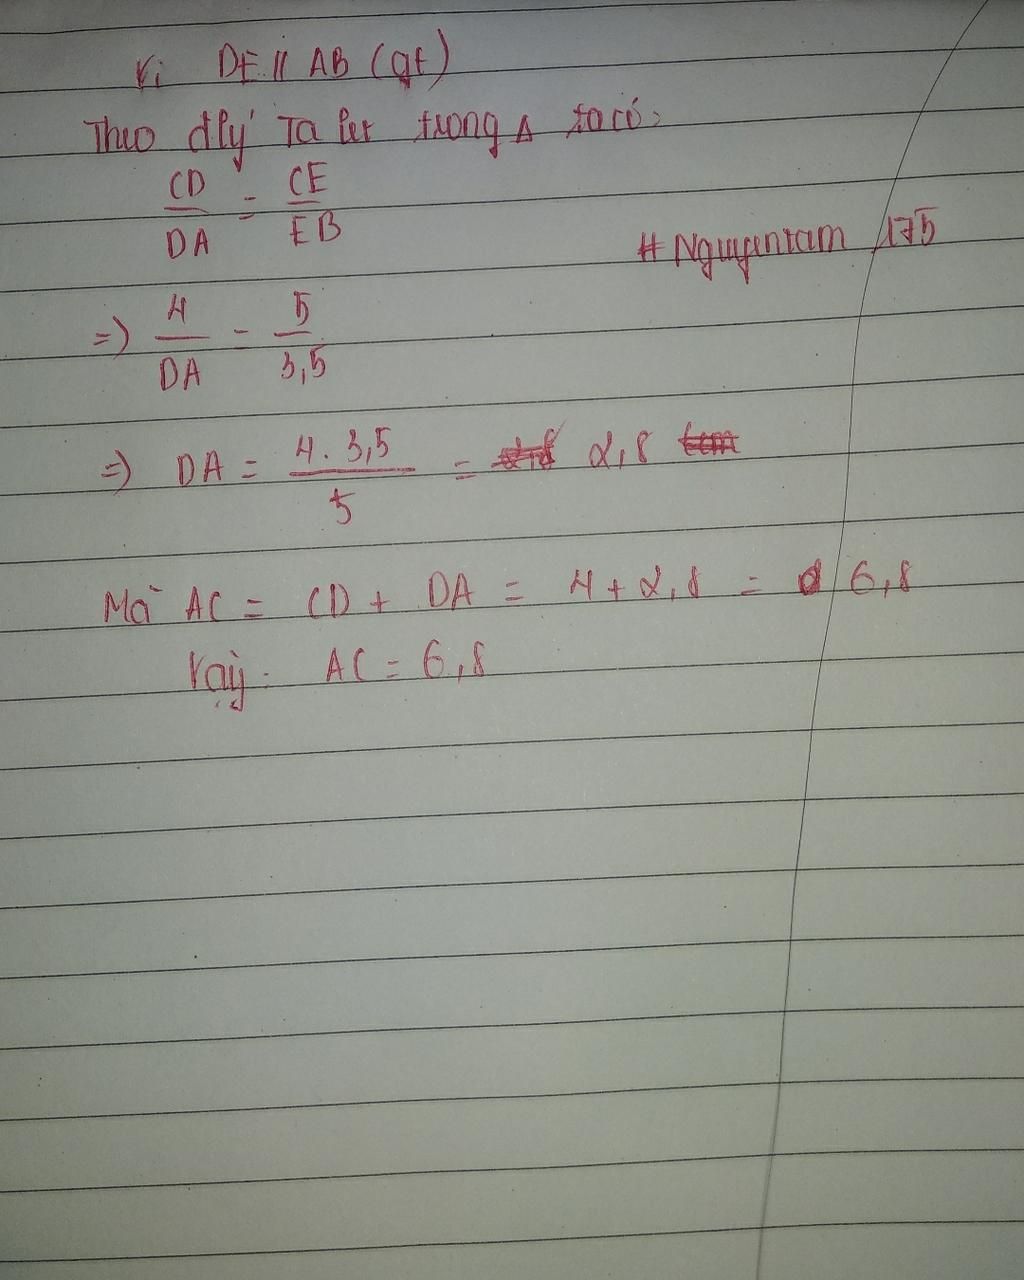 Vì DE // AB (gt)
Theo đlý Ta let trong Δ ta có:
CD/DA = CE/EB
# Nguyentam 175
=) 4/DA = 5/3,5
=) DA = 4.3,5/5 = 2,8
Mà AC = CD + DA = 4 + 2,8 = 6,8
Vậy: AC = 6,8